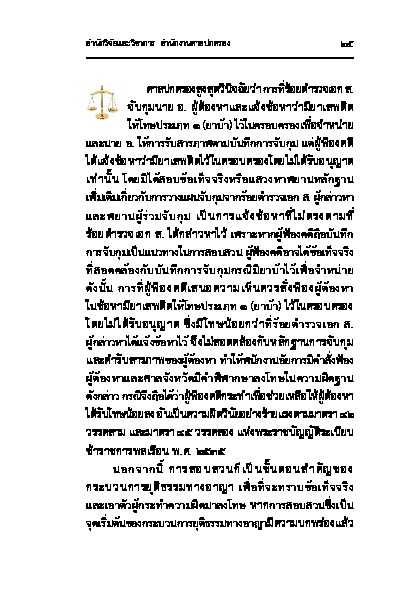 สำนักวิจัยและวิชาการ สำนักงานศาลปกครอง ๒๔๕
ศาลปกครองสูงสุดวินิจฉัยว่า การที่ร้อยตำรวจเอก ส.
จับกุมนาย อ. ผู้ต้องหาและแจ้งข้อหาว่ามียาเสพติด
ให้โทษประเภท ๑ (ยาบ้า) ไว้ในครอบครองเพื่อจำหน่าย
และนาย อ. ให้การรับสารภาพตามบันทึกการจับกุม แต่ผู้ฟ้องคดี
ได้แจ้งข้อหาว่ามียาเสพติดไว้ในครอบครองโดยไม่ได้รับอนุญาต
เท่านั้น โดยมิได้สอบข้อเท็จจริงหรือแสวงหาพยานหลักฐาน
เพิ่มเติมเกี่ยวกับการวางแผนจับกุมจากร้อยตำรวจเอก ส. ผู้กล่าวหา
และพยานผู้ร่วมจับกุม เป็นการแจ้งข้อหาที่ไม่ตรงตามที่
ร้อยตำรวจเอก ส. ได้กล่าวหาไว้ เพราะหากผู้ฟ้องคดีถือบันทึก
การจับกุมเป็นแนวทางในการสอบสวน ผู้ฟ้องคดีอาจได้ข้อเท็จจริง
ที่สอดคล้องกับบันทึกการจับกุมกรณีมียาบ้าไว้เพื่อจำหน่าย
ดังนั้น การที่ผู้ฟ้องคดีเสนอความเห็นควรสั่งฟ้องผู้ต้องหา
ในข้อหามียาเสพติดให้โทษประเภท ๑ (ยาบ้า) ไว้ในครอบครอง
โดยไม่ได้รับอนุญาต ซึ่งมีโทษน้อยกว่าที่ร้อยตำรวจเอก ส.
ผู้กล่าวหาได้แจ้งข้อหาไว้ จึงไม่สอดคล้องกับหลักฐานการจับกุม
และคำรับสารภาพของผู้ต้องหา ทำให้พนักงานอัยการมีคำสั่งฟ้อง
ผู้ต้องหาและศาลจังหวัดมีคำพิพากษาลงโทษในความผิดฐาน
ดังกล่าว กรณีจึงถือได้ว่าผู้ฟ้องคดีกระทำเพื่อช่วยเหลือให้ผู้ต้องหา
ได้รับโทษน้อยลง อันเป็นความผิดวินัยอย่างร้ายแรงตามมาตรา ๘๒
วรรคสาม และมาตรา ๘๕ วรรคสอง แห่งพระราชบัญญัติระเบียบ
ข้าราชการพลเรือน พ.ศ. ๒๕๓๕
นอกจากนี้ การสอบสวนก็เป็นขั้นตอนสำคัญของ
กระบวนการยุติธรรมทางอาญา เพื่อที่จะทราบข้อเท็จจริง
และเอาตัวผู้กระทำความผิดมาลงโทษ หากการสอบสวนซึ่งเป็น
จุดเริ่มต้นของกระบวนการยุติธรรมทางอาญามีความบกพร่องแล้ว